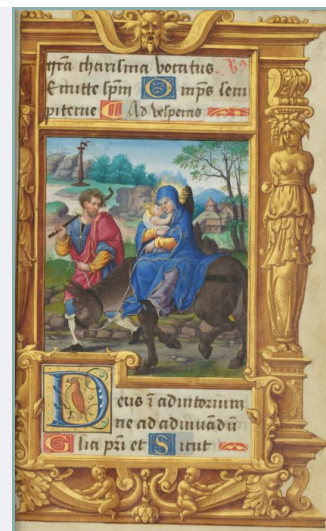 gra charisma vocatus. V
Emitte spm O mps sem
piterne Ad vesperas
Deus i adiutorium
ne ad adiuuadu
Glia pri et Sicut